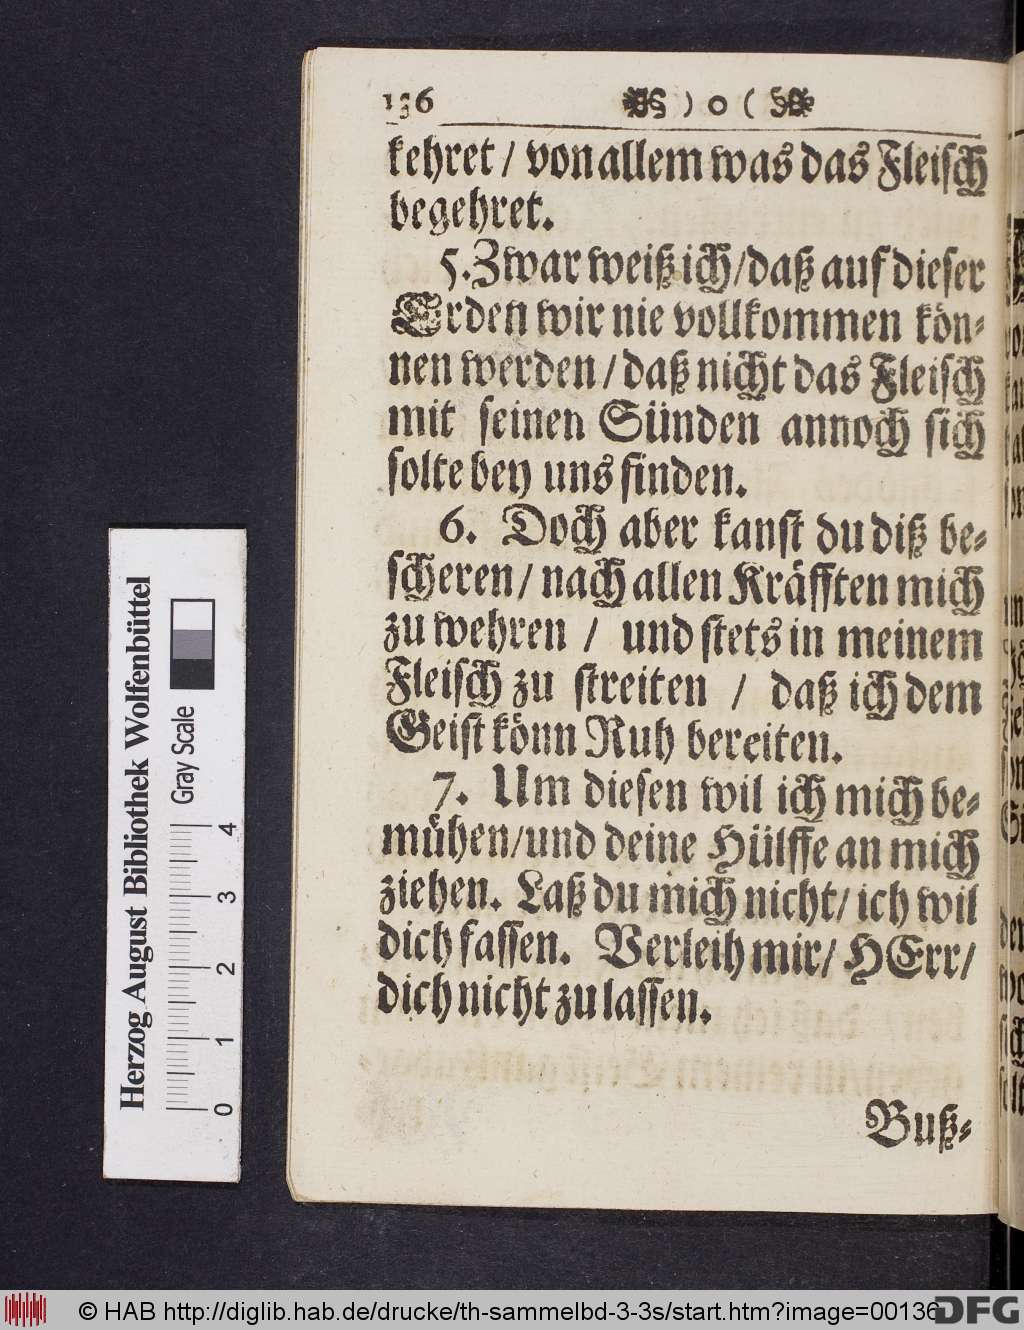 136 ) o (
kehret / von allem was das Fleisch
begehret.
5. Zwar weiß ich/daß auf dieser
Erden wir nie vollkommen kön-
nen werden / daß nicht das Fleisch
mit seinen Sünden annoch sich
solte bey uns finden.
6. Doch aber kanst du diß be-
scheren / nach allen Kräfften mich
zu wehren / und stets in meinem
Fleisch zu streiten / daß ich dem
Geist könn Ruh bereiten.
7. Um diesen wil ich mich be-
mühen/und deine Hülffe an mich
ziehen. Laß du mich nicht/ ich wil
dich fassen. Verleih mir/ HErr/
dich nicht zu lassen.
Buß-
Herzog August Bibliothek Wolfenbüttel
Gray Scale
0 1 2 3 4
© HAB http://diglib.hab.de/drucke/th-sammelbd-3-3s/start.htm?image=00136
DFG